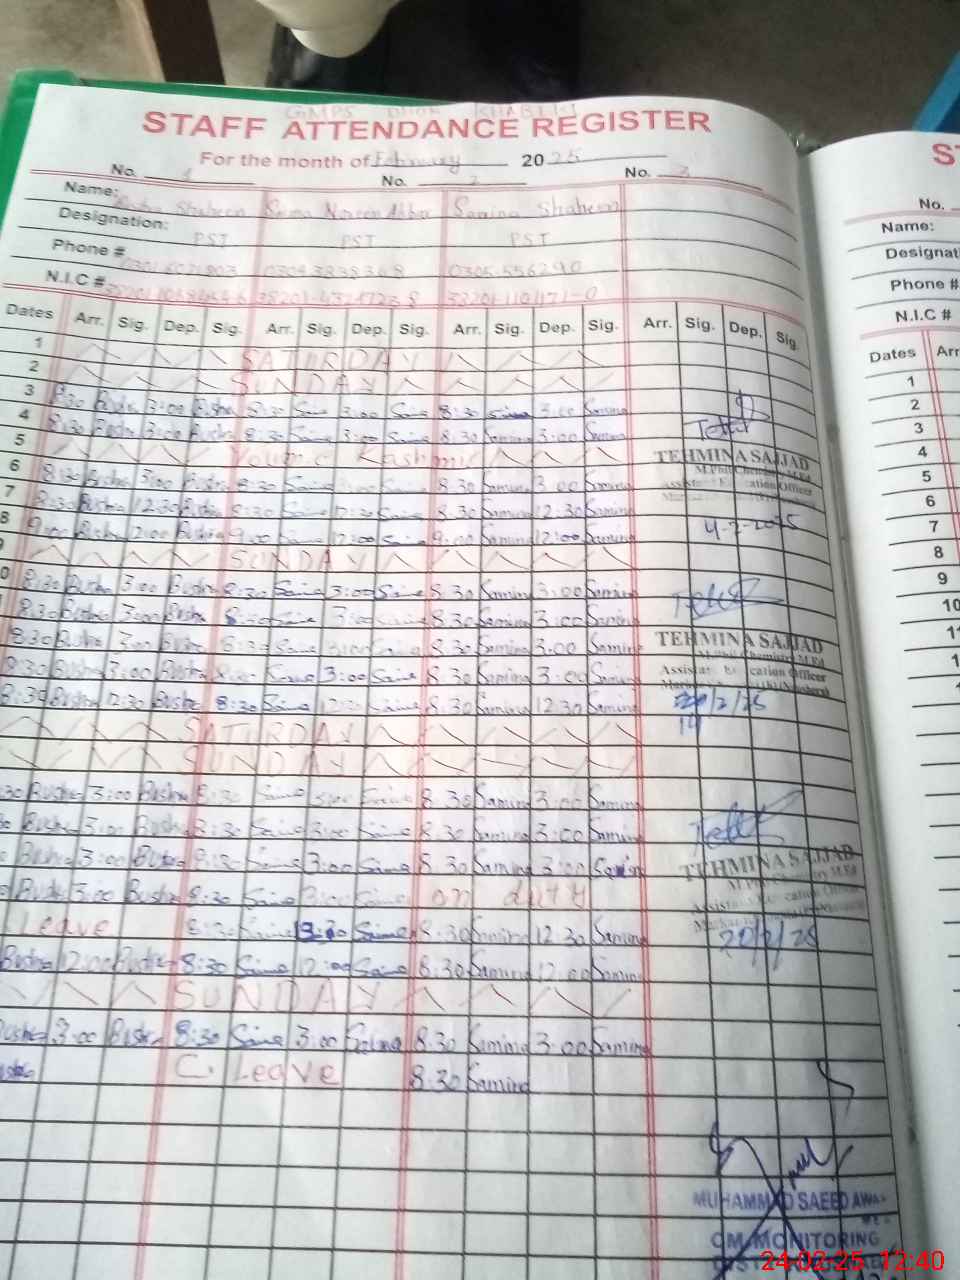 GMPS DHOK KHABIKI
STAFF ATTENDANCE REGISTER
For the month of February 2025
No. 1 No. 2 No. 3
Name: Bushra Shaheen Saima Noreen Akhtar Samina Shaheen
Designation: PST PST PST
Phone #
N.I.C #
Dates Arr. Sig. Dep. Sig. Arr. Sig. Dep. Sig. Arr. Sig. Dep. Sig. Arr. Sig. Dep. Sig.
1 SATURDAY
2 SUNDAY
3 8:30 Bushra 3:00 Bushra 8:30 Saima 3:00 Saima 8:30 Samina 3:00 Samina
4 8:30 Bushra 3:00 Bushra 8:30 Saima 3:00 Saima 8:30 Samina 3:00 Samina
5 Youm-e Kashmir
6 8:30 Bushra 3:00 Bushra 8:30 Saima 8:30 Samina 3:00 Samina
7 8:30 Bushra 12:30 Bushra 8:30 Saima 12:30 Saima 8:30 Samina 12:30 Samina
8 9:00 Bushra 12:00 Bushra 9:00 Saima 12:00 Saima 9:00 Samina 12:00 Samina
SUNDAY
0 8:30 Bushra 3:00 Bushra 8:30 Saima 3:00 Saima 8:30 Samina 3:00 Samina
8:30 Bushra 3:00 Bushra 8:30 Saima 3:00 Saima 8:30 Samina 3:00 Samina
8:30 Bushra 3:00 Bushra 8:30 Saima 3:00 Saima 8:30 Samina 3:00 Samina
8:30 Bushra 3:00 Bushra 8:30 Saima 3:00 Saima 8:30 Samina 3:00 Samina
8:30 Bushra 12:30 Bushra 8:30 Saima 12:30 Saima 8:30 Samina 12:30 Samina
SATURDAY
SUNDAY
:30 Bushra 3:00 Bushra 8:30 Saima 3:00 Saima 8:30 Samina 3:00 Samina
Bushra 3:00 Bushra 8:30 Saima 3:00 Saima 8:30 Samina 3:00 Samina
Bushra 3:00 Bushra 8:30 Saima 3:00 Saima 8:30 Samina 3:00 Samina
Bushra 3:00 Bushra 8:30 Saima 3:00 Saima on duty
Leave 8:30 Saima Saima 8:30 Samina 12:30 Samina
Bushra 12:00 Bushra 8:30 Saima 12:00 Saima 8:30 Samina 12:00 Samina
SUNDAY
Bushra 3:00 Bushra 8:30 Saima 3:00 Saima 8:30 Samina 3:00 Samina
C. Leave 8:30 Samina
TEHMINA SAJJAD
M.Phil Chemistry M.Ed
Assistant Education Officer
4-2-2025
TEHMINA SAJJAD
M.Phil Chemistry M.Ed
Assistant Education Officer
/2/25
14
TEHMINA SAJJAD
M.Phil Chemistry M.Ed
Assistant Education Officer
20/2/25
MUHAMMAD SAEED AWA
CM MONITORING
No.
Name:
Designati
Phone #
N.I.C #
Dates Arr
1
2
3
4
5
6
7
8
9
10
11
24-02-25 12:40